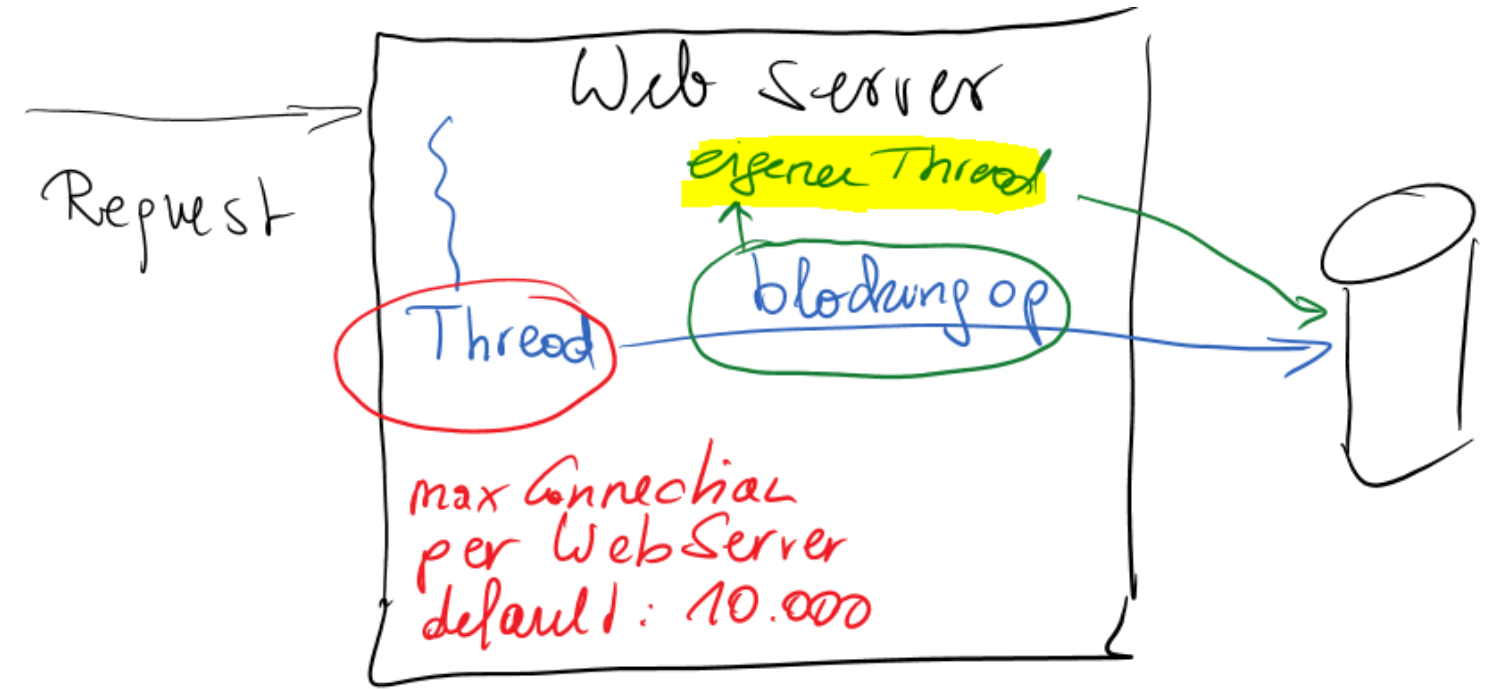 Web Server
Request
eigener Thread
blocking op
Thread
max Connection
per WebServer
default: 10.000